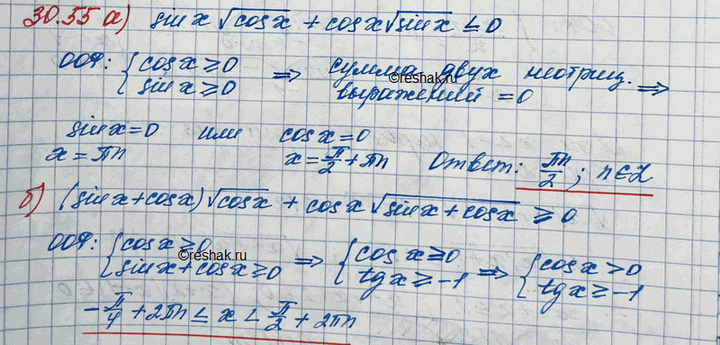 30.55 а) sin x √cos x + cos x √sin x ≤ 0
ООФ: { cos x ≥ 0 ; sin x ≥ 0 ⇒ сумма двух неотриц. выражений = 0 ⇒
reshak.ru
sin x = 0 или cos x = 0
x = πn x = π/2 + πn Ответ: πn/2 ; n∈Z
б) (sin x + cos x) √cos x + cos x √sin x + cos x ≥ 0
ООФ: { cos x ≥ 0 ; sin x + cos x ≥ 0 ⇒ { cos x ≥ 0 ; tg x ≥ -1 ⇒ { cos x > 0 ; tg x ≥ -1
©reshak.ru
-π/4 + 2πn ≤ x < π/2 + 2πn